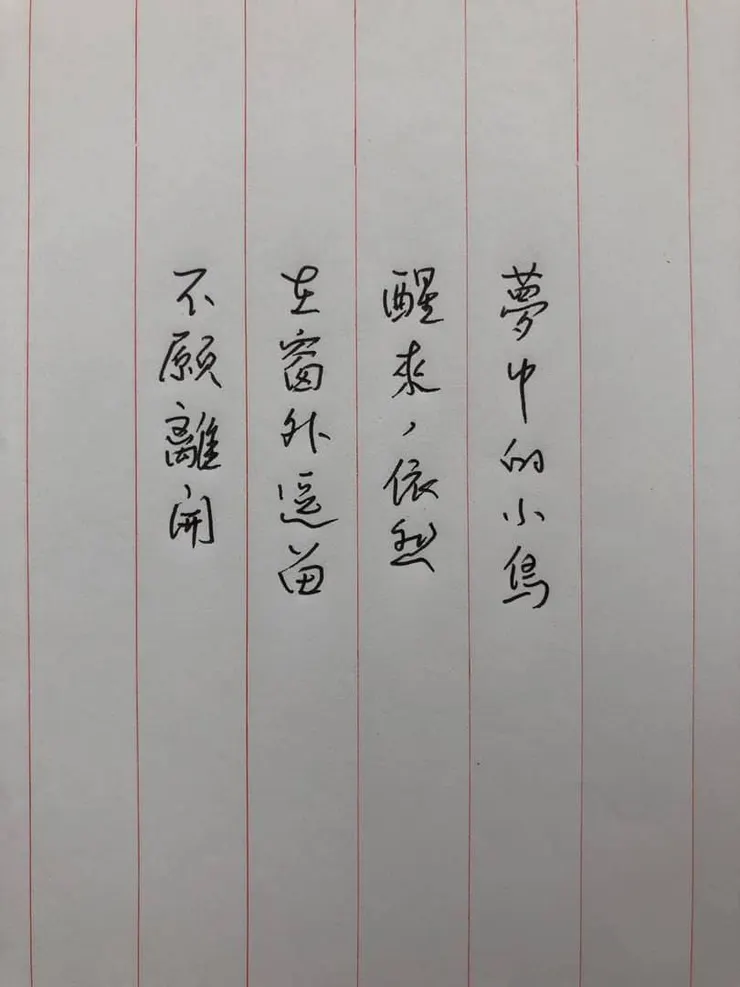 夢中的小鳥
醒來，依然
在窗外逗留
不願離開